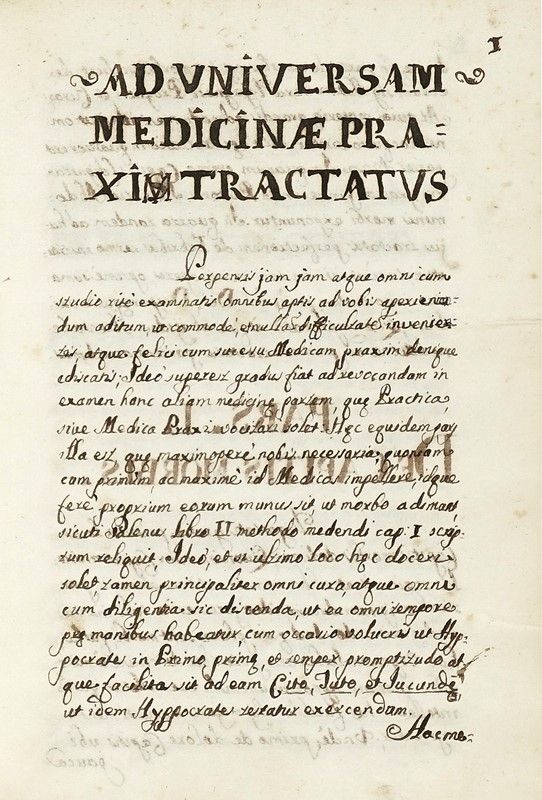 1
AD VNIVERSAM
MEDICINÆ PRA=
XIM TRACTATVS
Perpensis jam jam atque omni cum
studio ritè examinatis omnibus aptis ad vobis aperien=
dum aditum ut commodè, et nulla difficultate invenien=
tes, atque felici cum sucesu Medicam praxim denique
ediscatis; Ideo superest gradus fiat ad revocandam in
examen hanc aliam medicinę partem, quę Practica
sive Medica Praxi vocitari solet. Hęc ejusdem pars
illa est, quę maximoperè nobis necessaria, quoniam
cum primùm, ac maximè id Medica impellere, idque
ferè proprium eorum munus sit, ut morbo adimant
sicuti Galenus libro II methodo medendi cap. I scrip-
tum reliquit, Ideo, et si ultimo loco hęc doceri
solet, tamen principaliter omni cura, atque omni
cum diligentia sic discenda, ut ea omni tempore
prę manibus habeatur, cum occasio volucris ut Hyp-
pocrates in Primo primę, et semper promptitudo at
que facilitas sit ad eam Cito, Tuto, et Jucundè
ut idem Hyppocrates testatur exercendam.
Hac me-